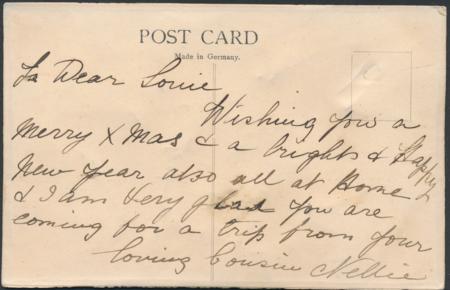 POST CARD
Made in Germany.
To Dear Louie
Wishing you a
Merry X Mas & a bright & Happy
New Year also all at Home
& I am very glad you are
coming for a trip from your
loving Cousin Nellie